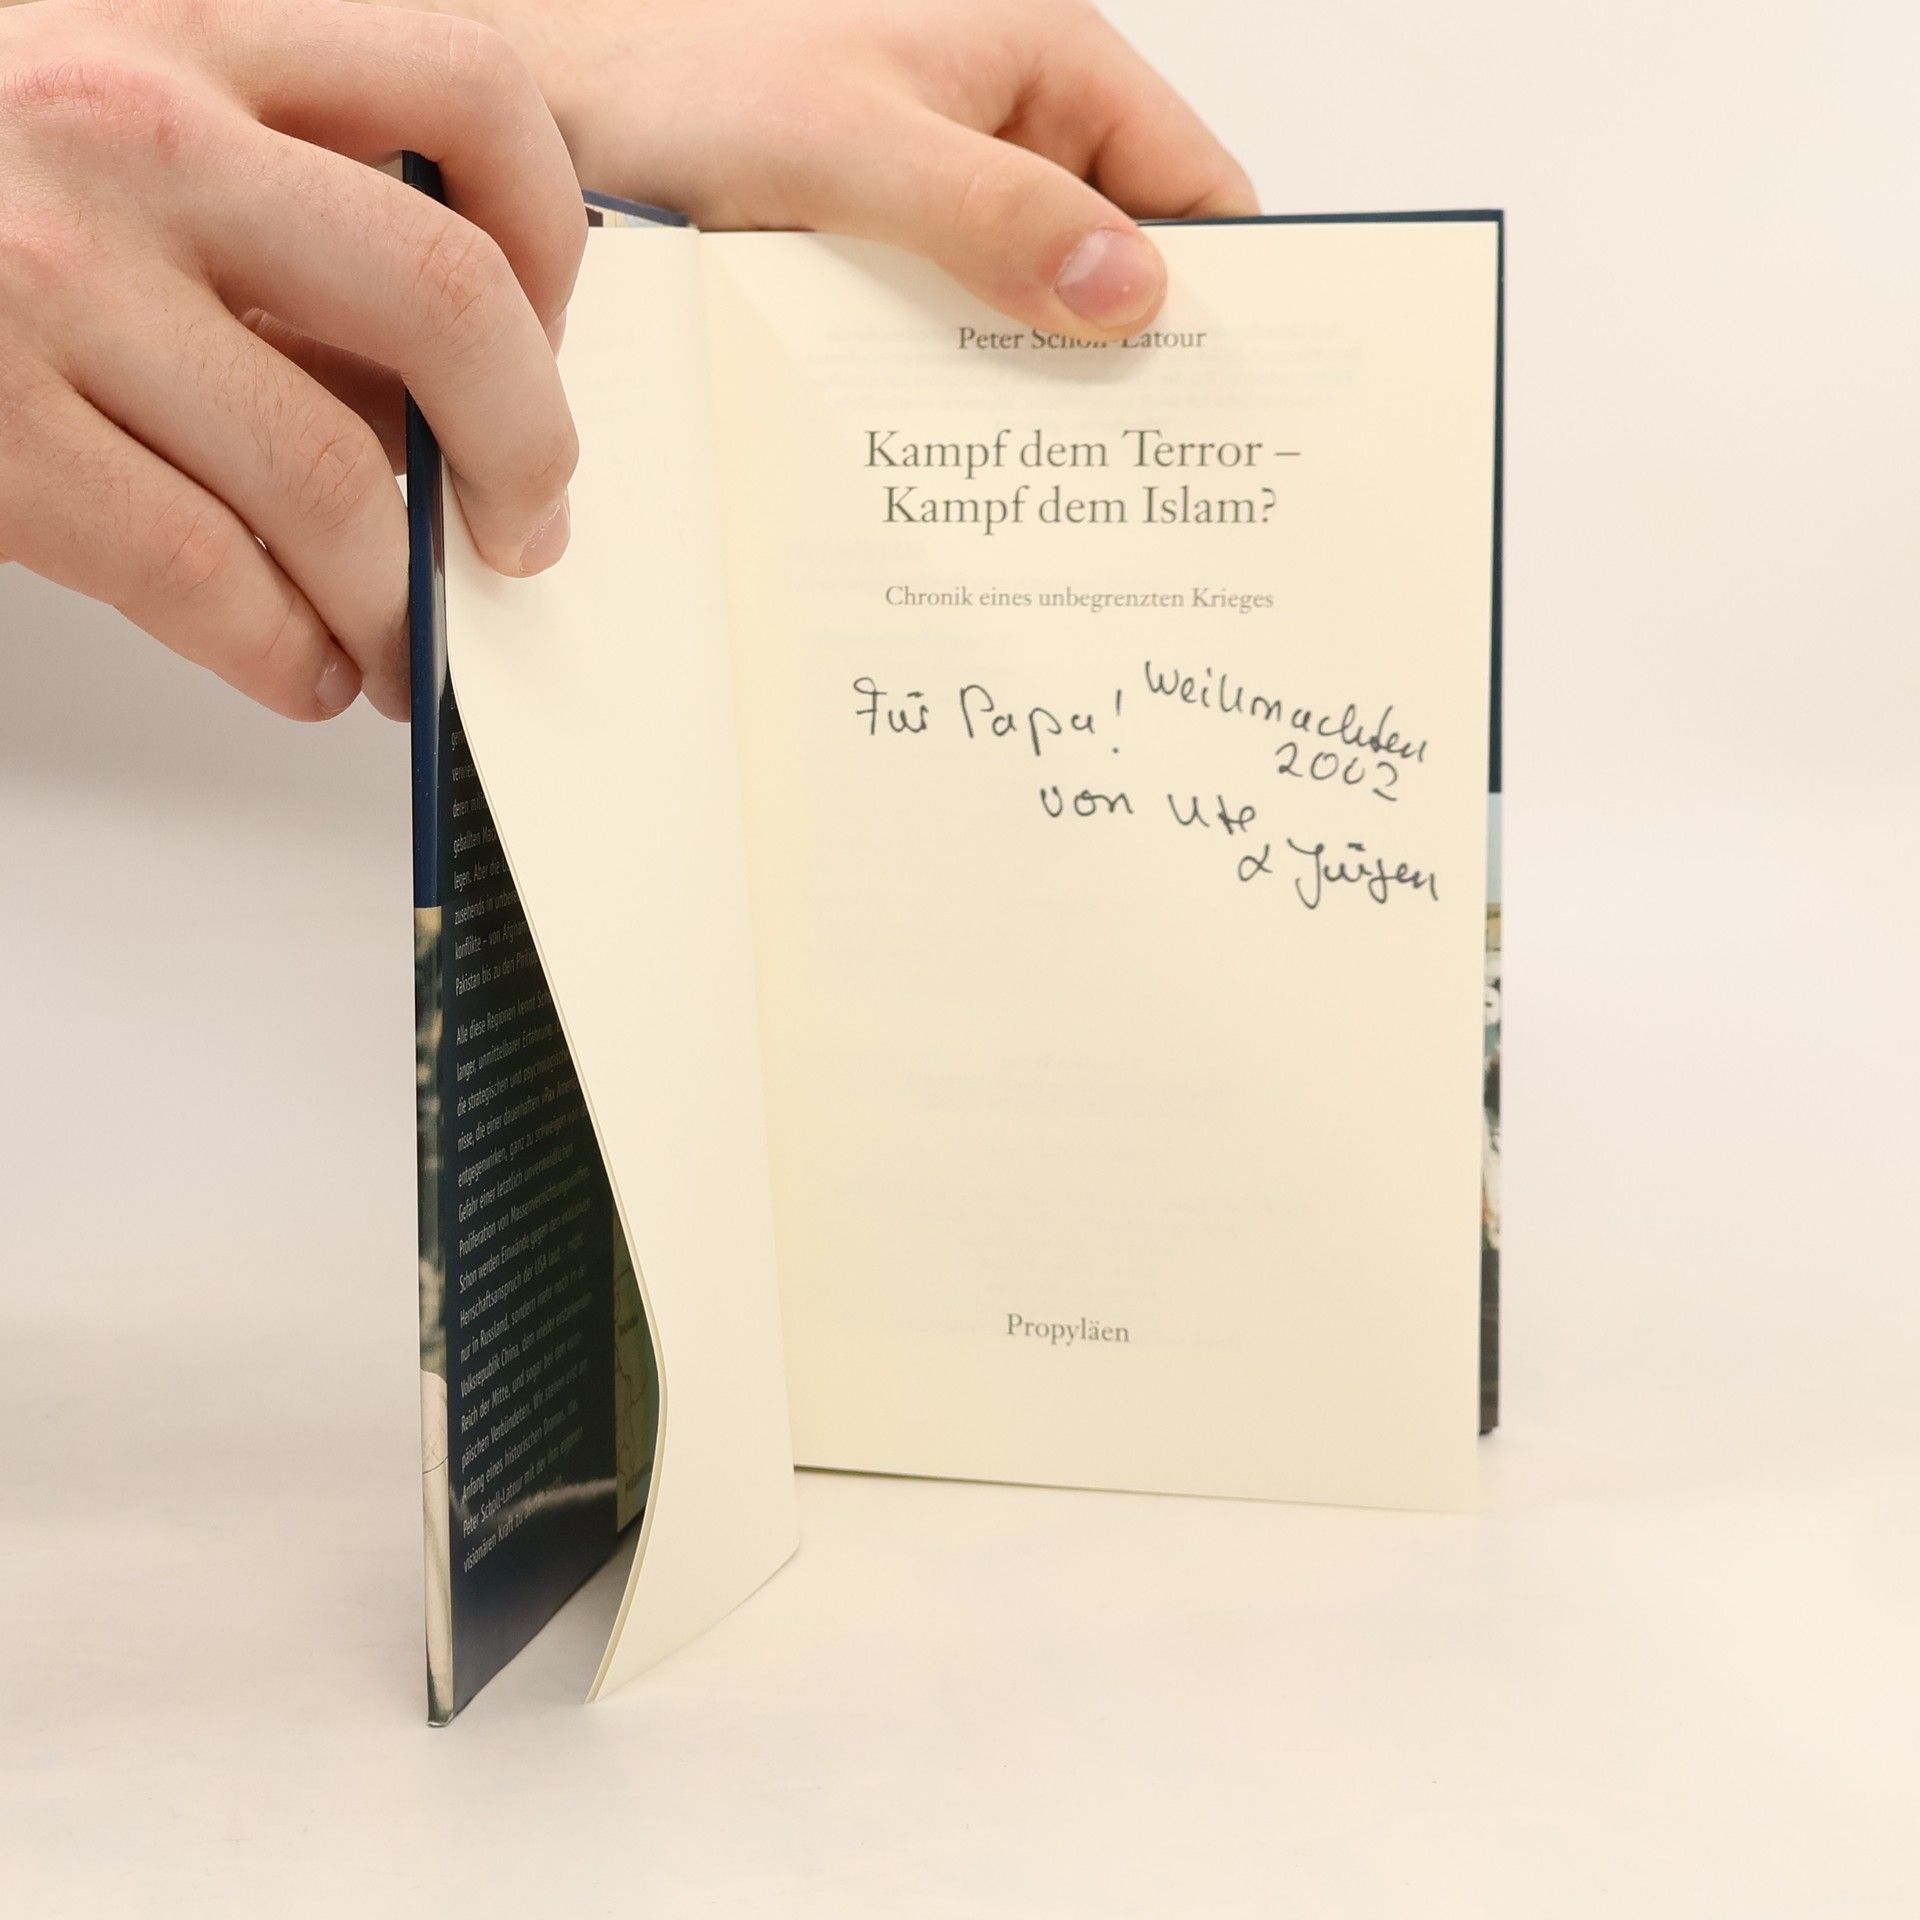 Peter Scholl-Latour
Kampf dem Terror –
Kampf dem Islam?
Chronik eines unbegrenzten Krieges
Für Papa! Weihnachten
2002
von Ute
& Jürgen
Propyläen
deren
geballten
legen. Aber die
zusehends in
konflikte – von
Pakistan bis zu den
Alle diese Regionen kennt
langer, unmittelbarer Erfahrung.
die strategischen und
nisse, die einer dauerhaften »Pax
entgegenwirken, ganz zu schweigen von
Gefahr einer letztlich unvermeidlichen
Proliferation von Massenvernichtungswaffen.
Schon werden Einwände gegen den exklusiven
Herrschaftsanspruch der USA laut – nicht
nur in Russland, sondern mehr noch in der
Volksrepublik China, dem wieder erstarkenden
Reich der Mitte, und sogar bei den euro-
päischen Verbündeten. Wir stehen erst am
Anfang eines historischen Dramas, das
Peter Scholl-Latour mit der ihm eigenen
visionären Kraft zu